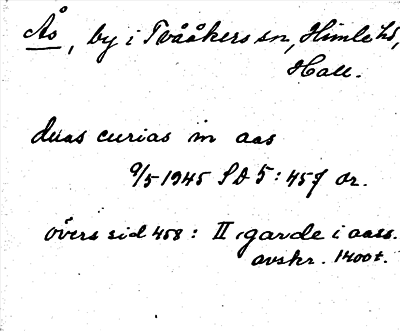 Ås, by i Tvååkers sn, Himle hd,
Hall.
duas curias in aas
9/5 1345 SD 5: 457 or.
övers sid 458: II garde i aass.
avskr. 1400t.